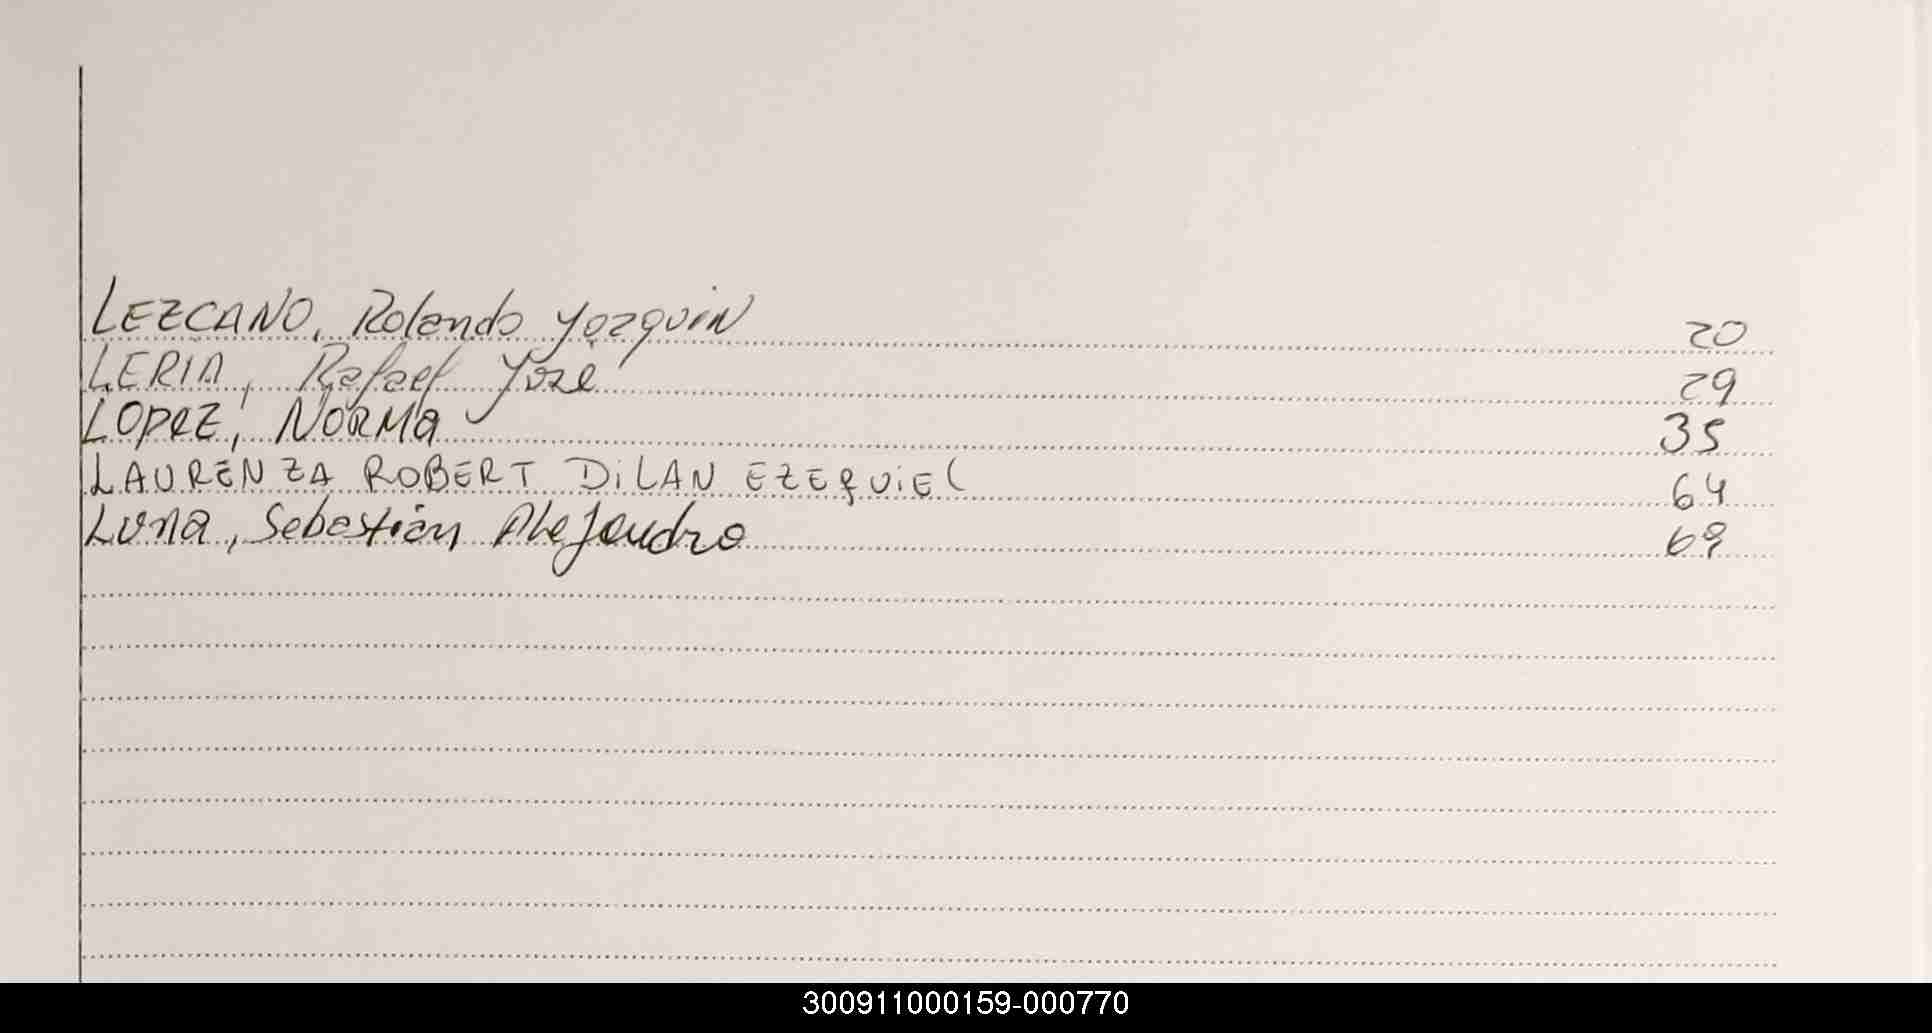 LEZCANO, Rolando Joaquin 20
LERIA, Rafael José 29
LOPEZ, NORMA 35
LAURENZA ROBERT DiLAN EZEQUiEL 64
Luna, Sebastián Alejandro 69
300911000159-000770